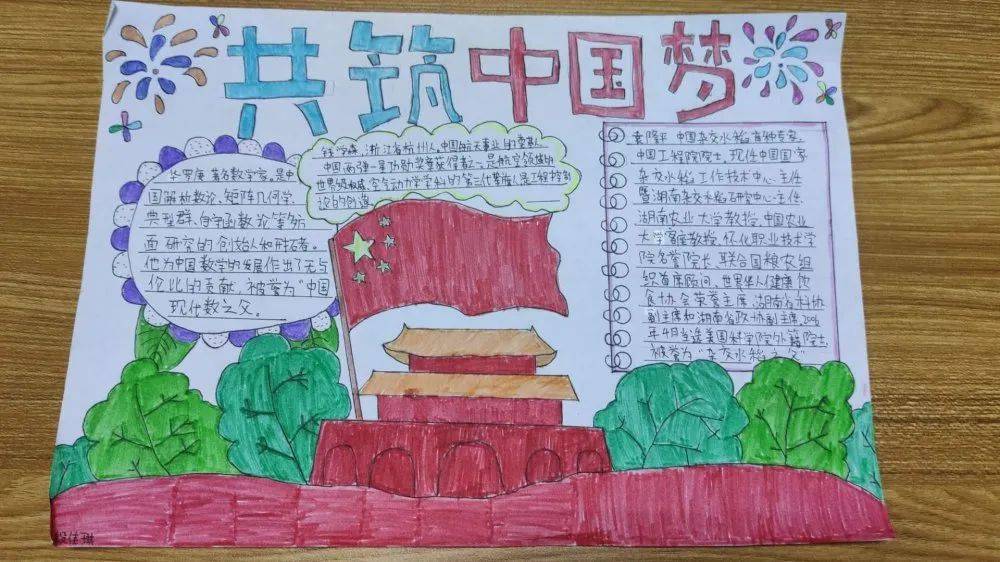 共筑中国梦
华罗庚 著名数学家,是中
国解析数论、矩阵几何学、
典型群、自守函数论等多方
面研究的创始人和开拓者。
他为中国数学的发展作出了无与
伦比的贡献,被誉为“中国
现代数之父。
钱学森,浙江省杭州人,中国航天事业的奠基人,
中国两弹一星功勋奖章获得者之一,是航空领域的
世界级权威、空气动力学学科的第三代挚旗人是工程控制
论的创造
袁隆平 中国杂交水稻育种专家,
中国工程院院士。现任中国国家
杂交水稻工作技术中心主任
暨湖南杂交水稻研究中心主任、
湖南农业大学教授、中国农业
大学客座教授、怀化职业技术学
院名誉院长、联合国粮农组
织首席顾问、世界华人健康饮
食协会荣誉主席、湖南省科协
副主席和湖南省政协副主席。2006
年4月当选美国科学院外籍院士,
被誉为“杂交水稻之父”